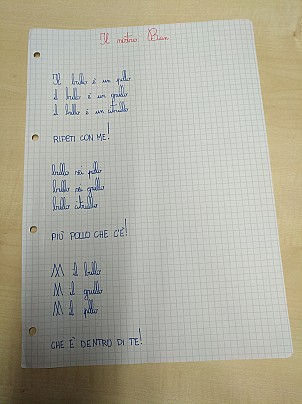 Il nostro Bun
Il bullo è un pollo
Il bullo è un grullo
Il bullo è un citrullo
RIPETI CON ME!
bullo sei pollo
bullo sei grullo
bullo citrullo
PIÙ POLLO CHE C'È!
W il bullo
W il grullo
W il pollo
CHE È DENTRO DI TE!